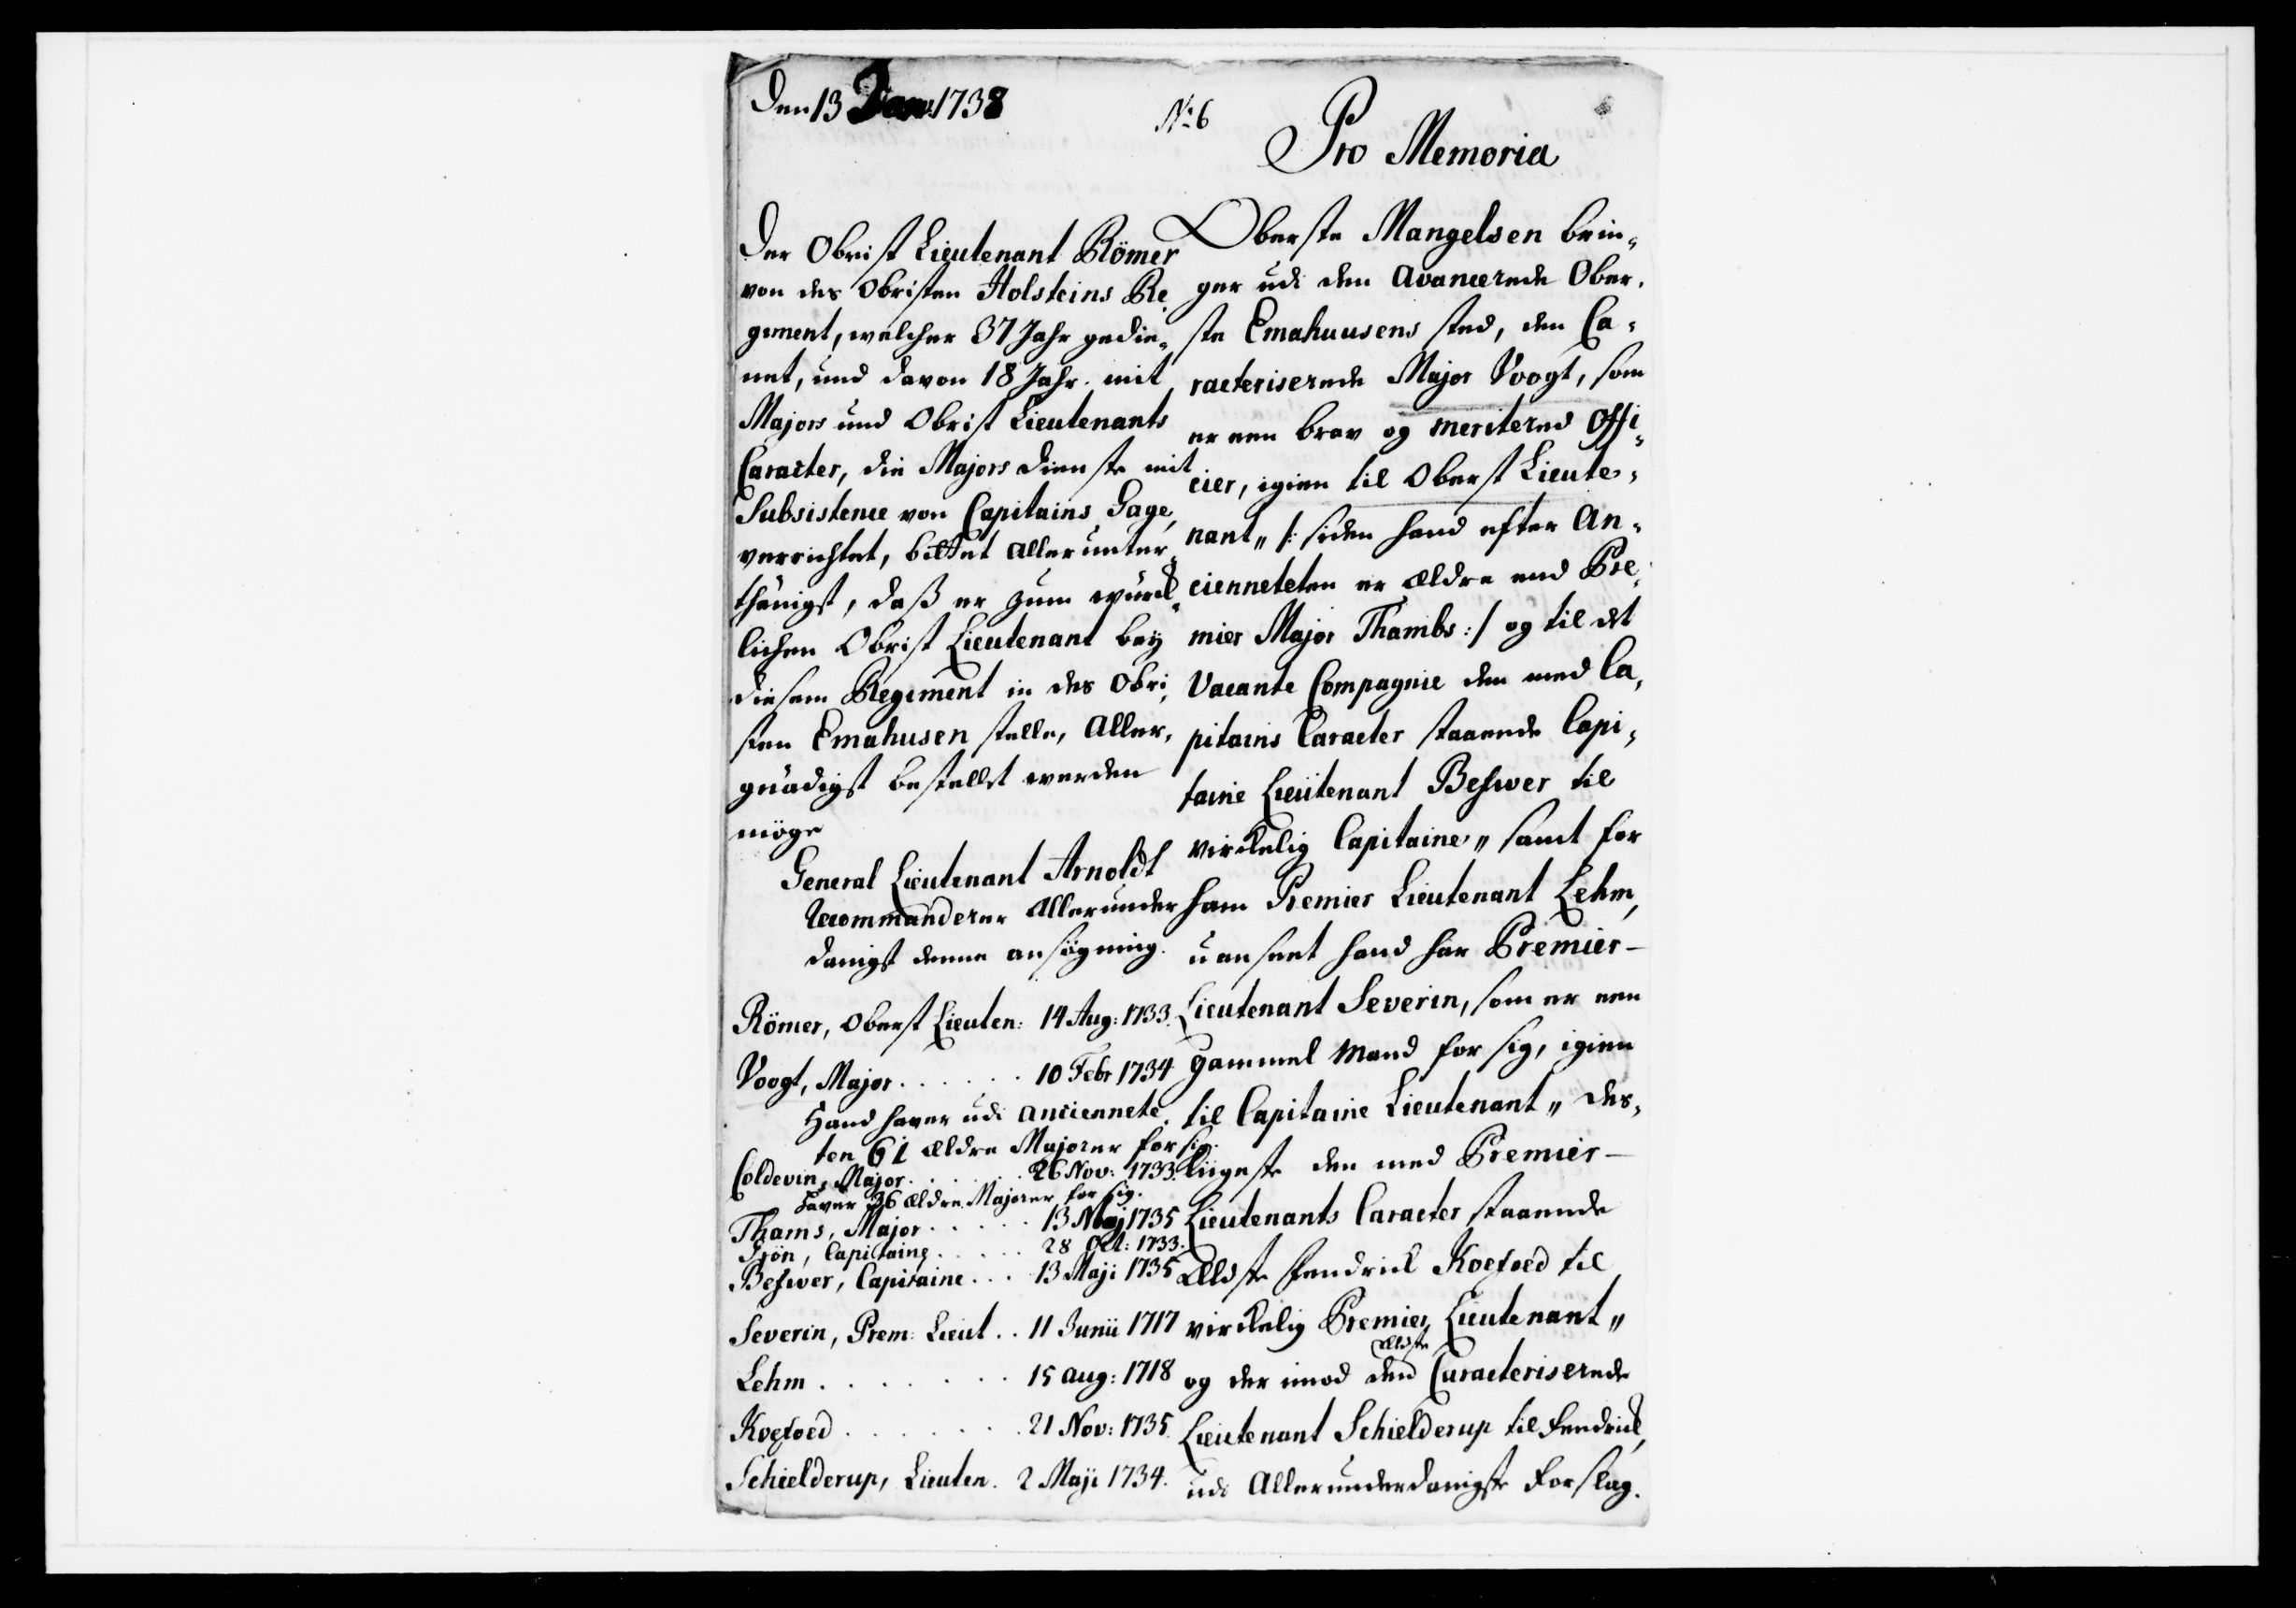 Den 13 Janv: 1738
No: 6
Pro Memoria
Der Obrist Lieutenant Römer
von des Obristen Holsteins Re¸
giment, welcher 37 Jahr gedie¸
net, und davon 18 Jahr mit
Majors und Obrist Lieutenants
Caracter, die Majors dienste mit
Subsistence von Capitains Gage,
verrichtet, bittet allerunter¸
thänigst, daß er zum würck¸
lichen Obrist Lieutenant bey
diesem Regiment in des Obri¸
sten Emahusen stelle, Aller¸
gnädigst bestellt werden
möge
General Lieutenant Arnoldt
Recommanderer allerunder
danigst denne ansögning.
Römer, Oberst Lieuten: 14 Aug: 1733.
Voogt, Major . . . . . . 10 Febr 1734
Hand haver udi anciennete¸
ten 61 ældre Majorer for sig.
Coldevin, Major . . . . . . 26 Nov: 1733.
haver 36 ældre Majorer for sig.
Thams, Major . . . . . 13 Maj 1735
Grön, Capitaine . . . . . 28 Oct: 1733.
Beswer, Capitaine . . . 13 Maji 1735
Severin, Prem: Lieut . . 11 Junii 1717
Lehm . . . . . . . 15 aug: 1718
Koefoed . . . . . . . 21 Nov: 1735.
Schielderup, Lieuten. 2 Maji 1734.
Oberste Mangelsen brin¸
ger udi den avancerede Ober¸
ste Emahuusens sted, den Ca¸
racteriserede Major Voogt, som
er een brav og meritered Offi¸
cier, igien til Oberst Lieute¸
nant„ /: siden hand efter An¸
cienneteten er ældre end Pre¸
mier Major Thambs :/ og til det
Vacante Compagnie den med Ca¸
pitains Caracter staaende Capi¸
taine Lieutenant Beswer til
virckelig Capitaine„ samt for
ham Premier Lieutenant Lehm,
uanseet hand har Premier-
Lieutenant Severin, som er een
gammel Mand for sig, igien
til Capitaine Lieutenant„ des¸
liigeste den med Premier-
Lieutenants Caracter staaende
ældste fendrick Koefoed til
virckelig Premier Lieutenant„
ældste
og der imod den Caracteriserede
Lieutenant Schielderup til fendrick,
udi Allerunderdanigste forslag.